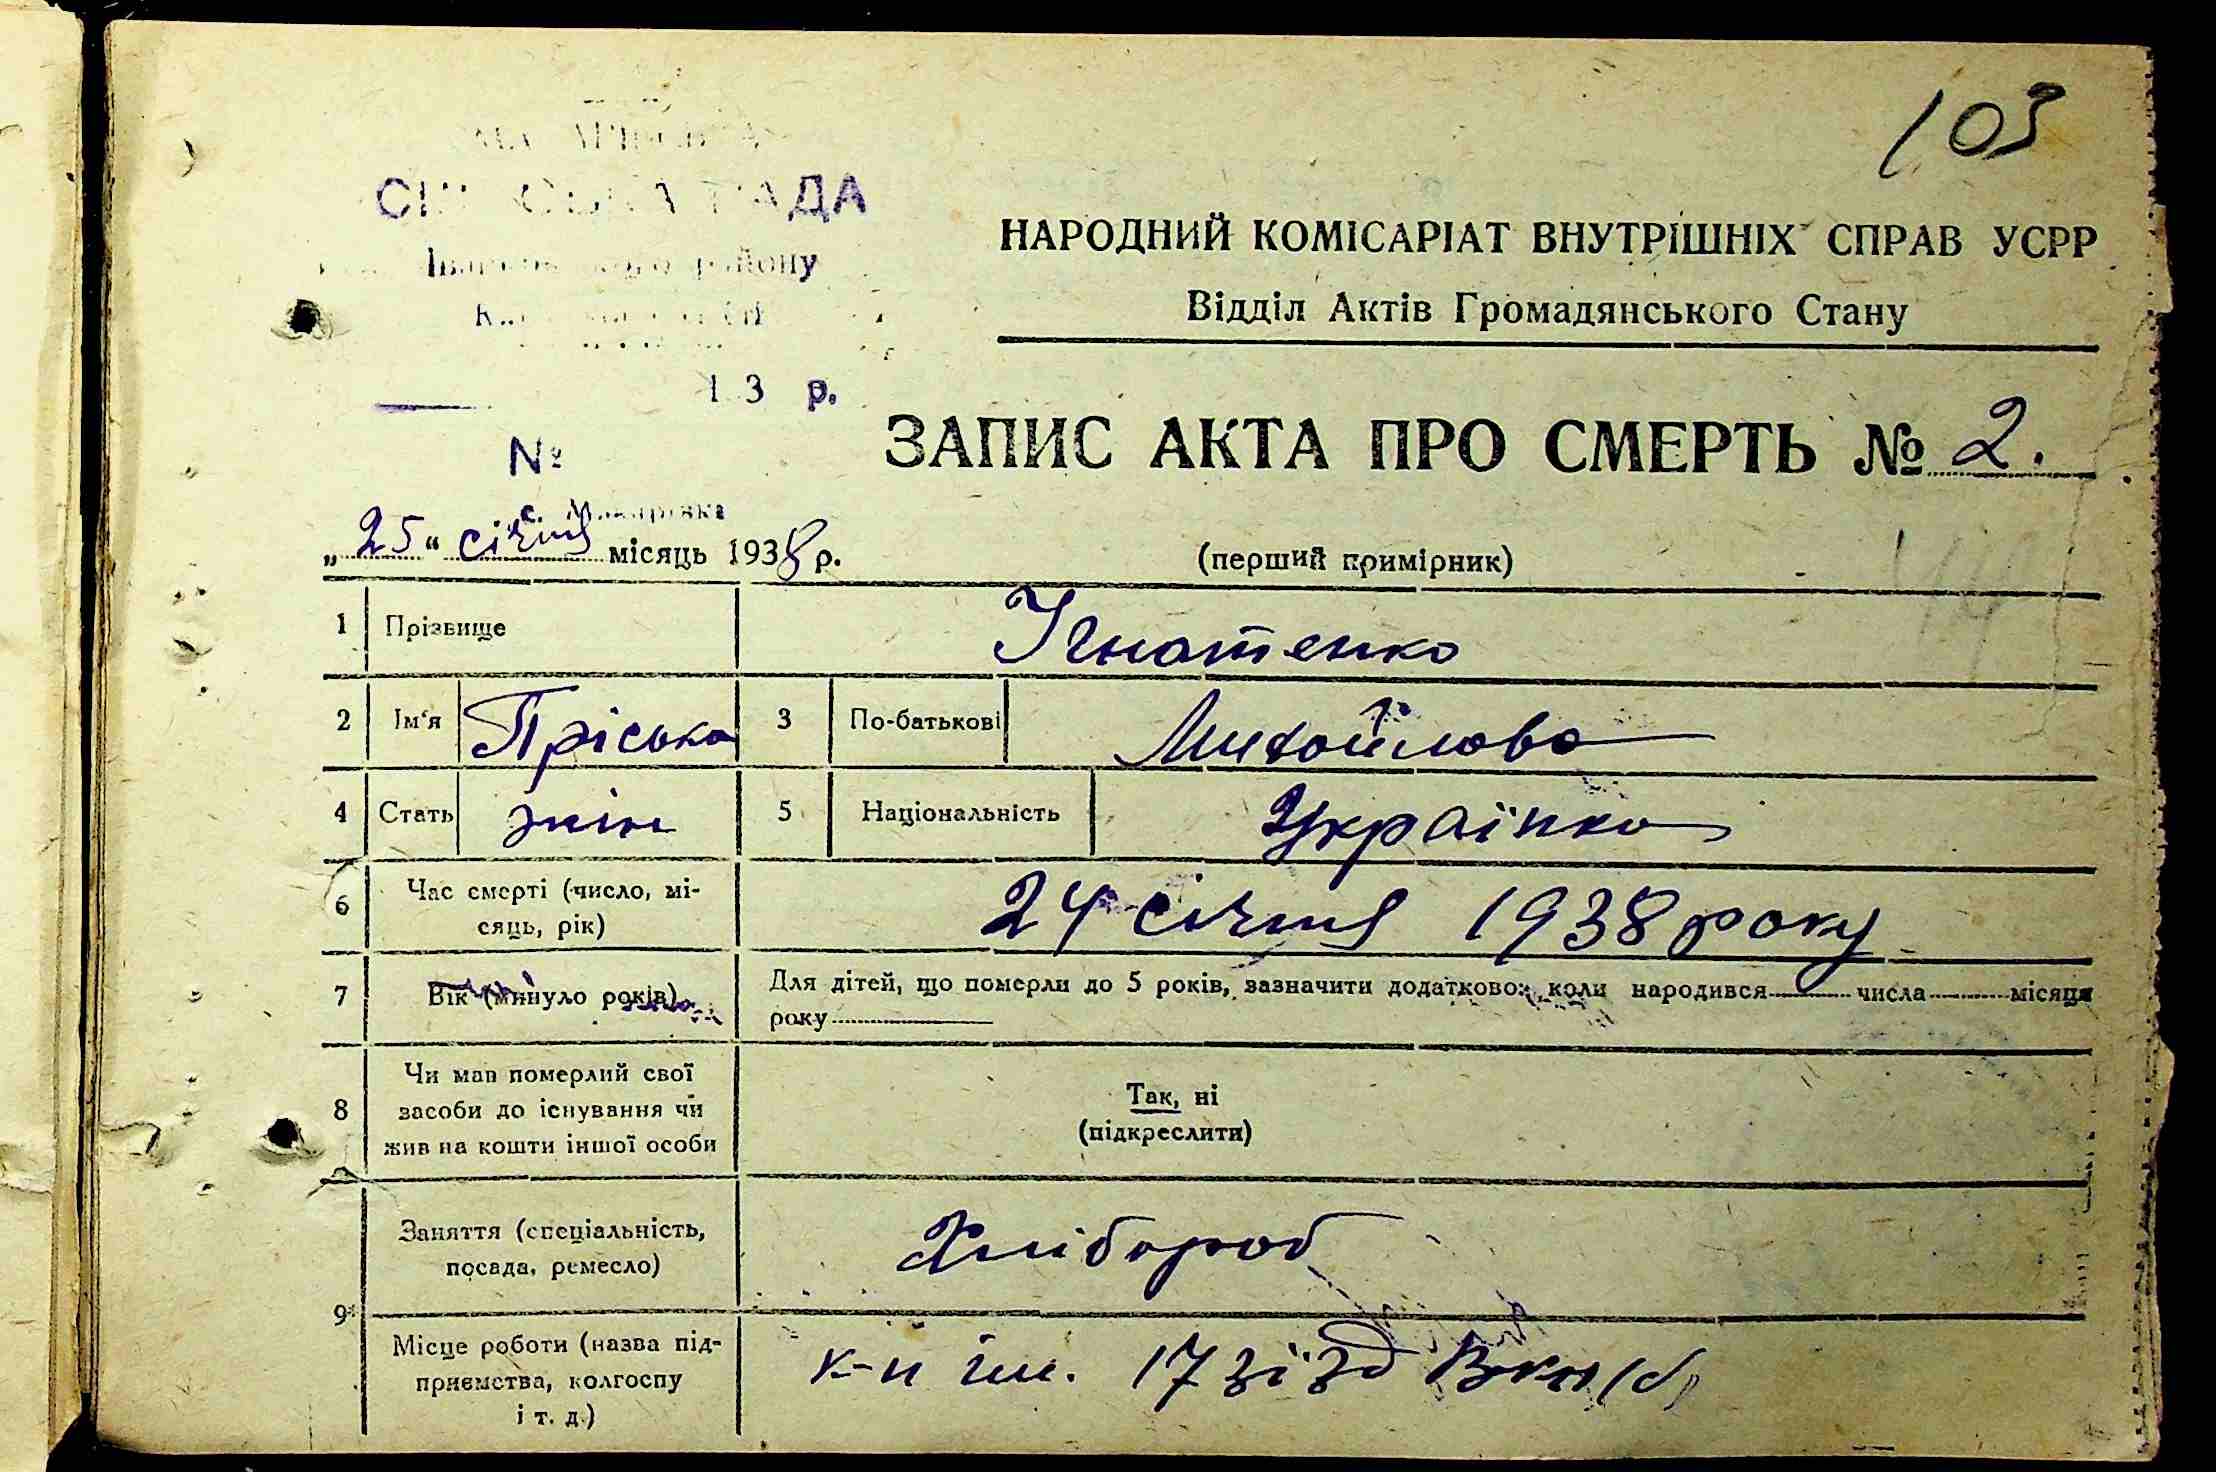 103
РАДА
району
НАРОДНИЙ КОМІСАРІАТ ВНУТРІШНІХ СПРАВ УСРР
Відділ Актів Громадянського Стану
13 р.
ЗАПИС АКТА ПРО СМЕРТЬ № 2.
№
с. Макарівка
„25“ січня місяць 1938 р.
(перший примірник)
1 Прізвище Ігнатенко
2 Ім‘я Пріська 3 По-батькові Михайлова
4 Стать жін 5 Національність Українка
6 Час смерті (число, мі-
сяць, рік) 24 січня 1938 року
7 Вік (минуло років) Для дітей, що померли до 5 років, зазначити додатково: коли народився числа місяця
року
Чи мав померлий свої
8 засоби до існування чи
жив на кошти іншої особи
Так, ні
(підкреслити)
Заняття (спеціальність,
посада, ремесло) Хлібороб
9
Місце роботи (назва під-
приємства, колгоспу
і т. д.)
к-п ім. 17 зїзд Вкп(б)